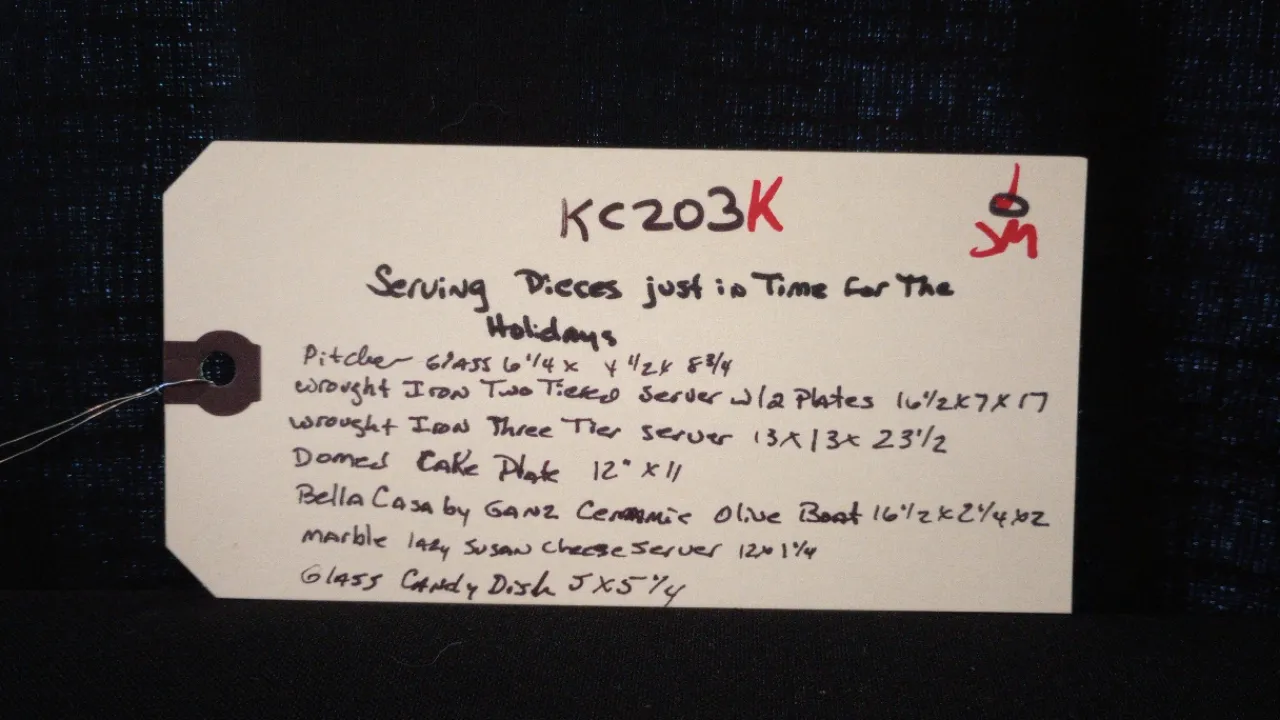 KC203K
JM
Serving Pieces just in Time for The
Holidays
Pitcher Glass 6 1/4 x 4 1/2 x 8 3/4
wrought Iron Two Tiered Server w/2 Plates 16 1/2 x 7 x 17
wrought Iron Three Tier server 13 x 13 x 23 1/2
Domed Cake Plate 12" x 11
Bella Casa by GANZ Ceramic Olive Boat 16 1/2 x 2 1/4 x 2
marble lazy Susan Cheese Server 12 x 1 1/4
Glass Candy Dish 5 x 5 1/4